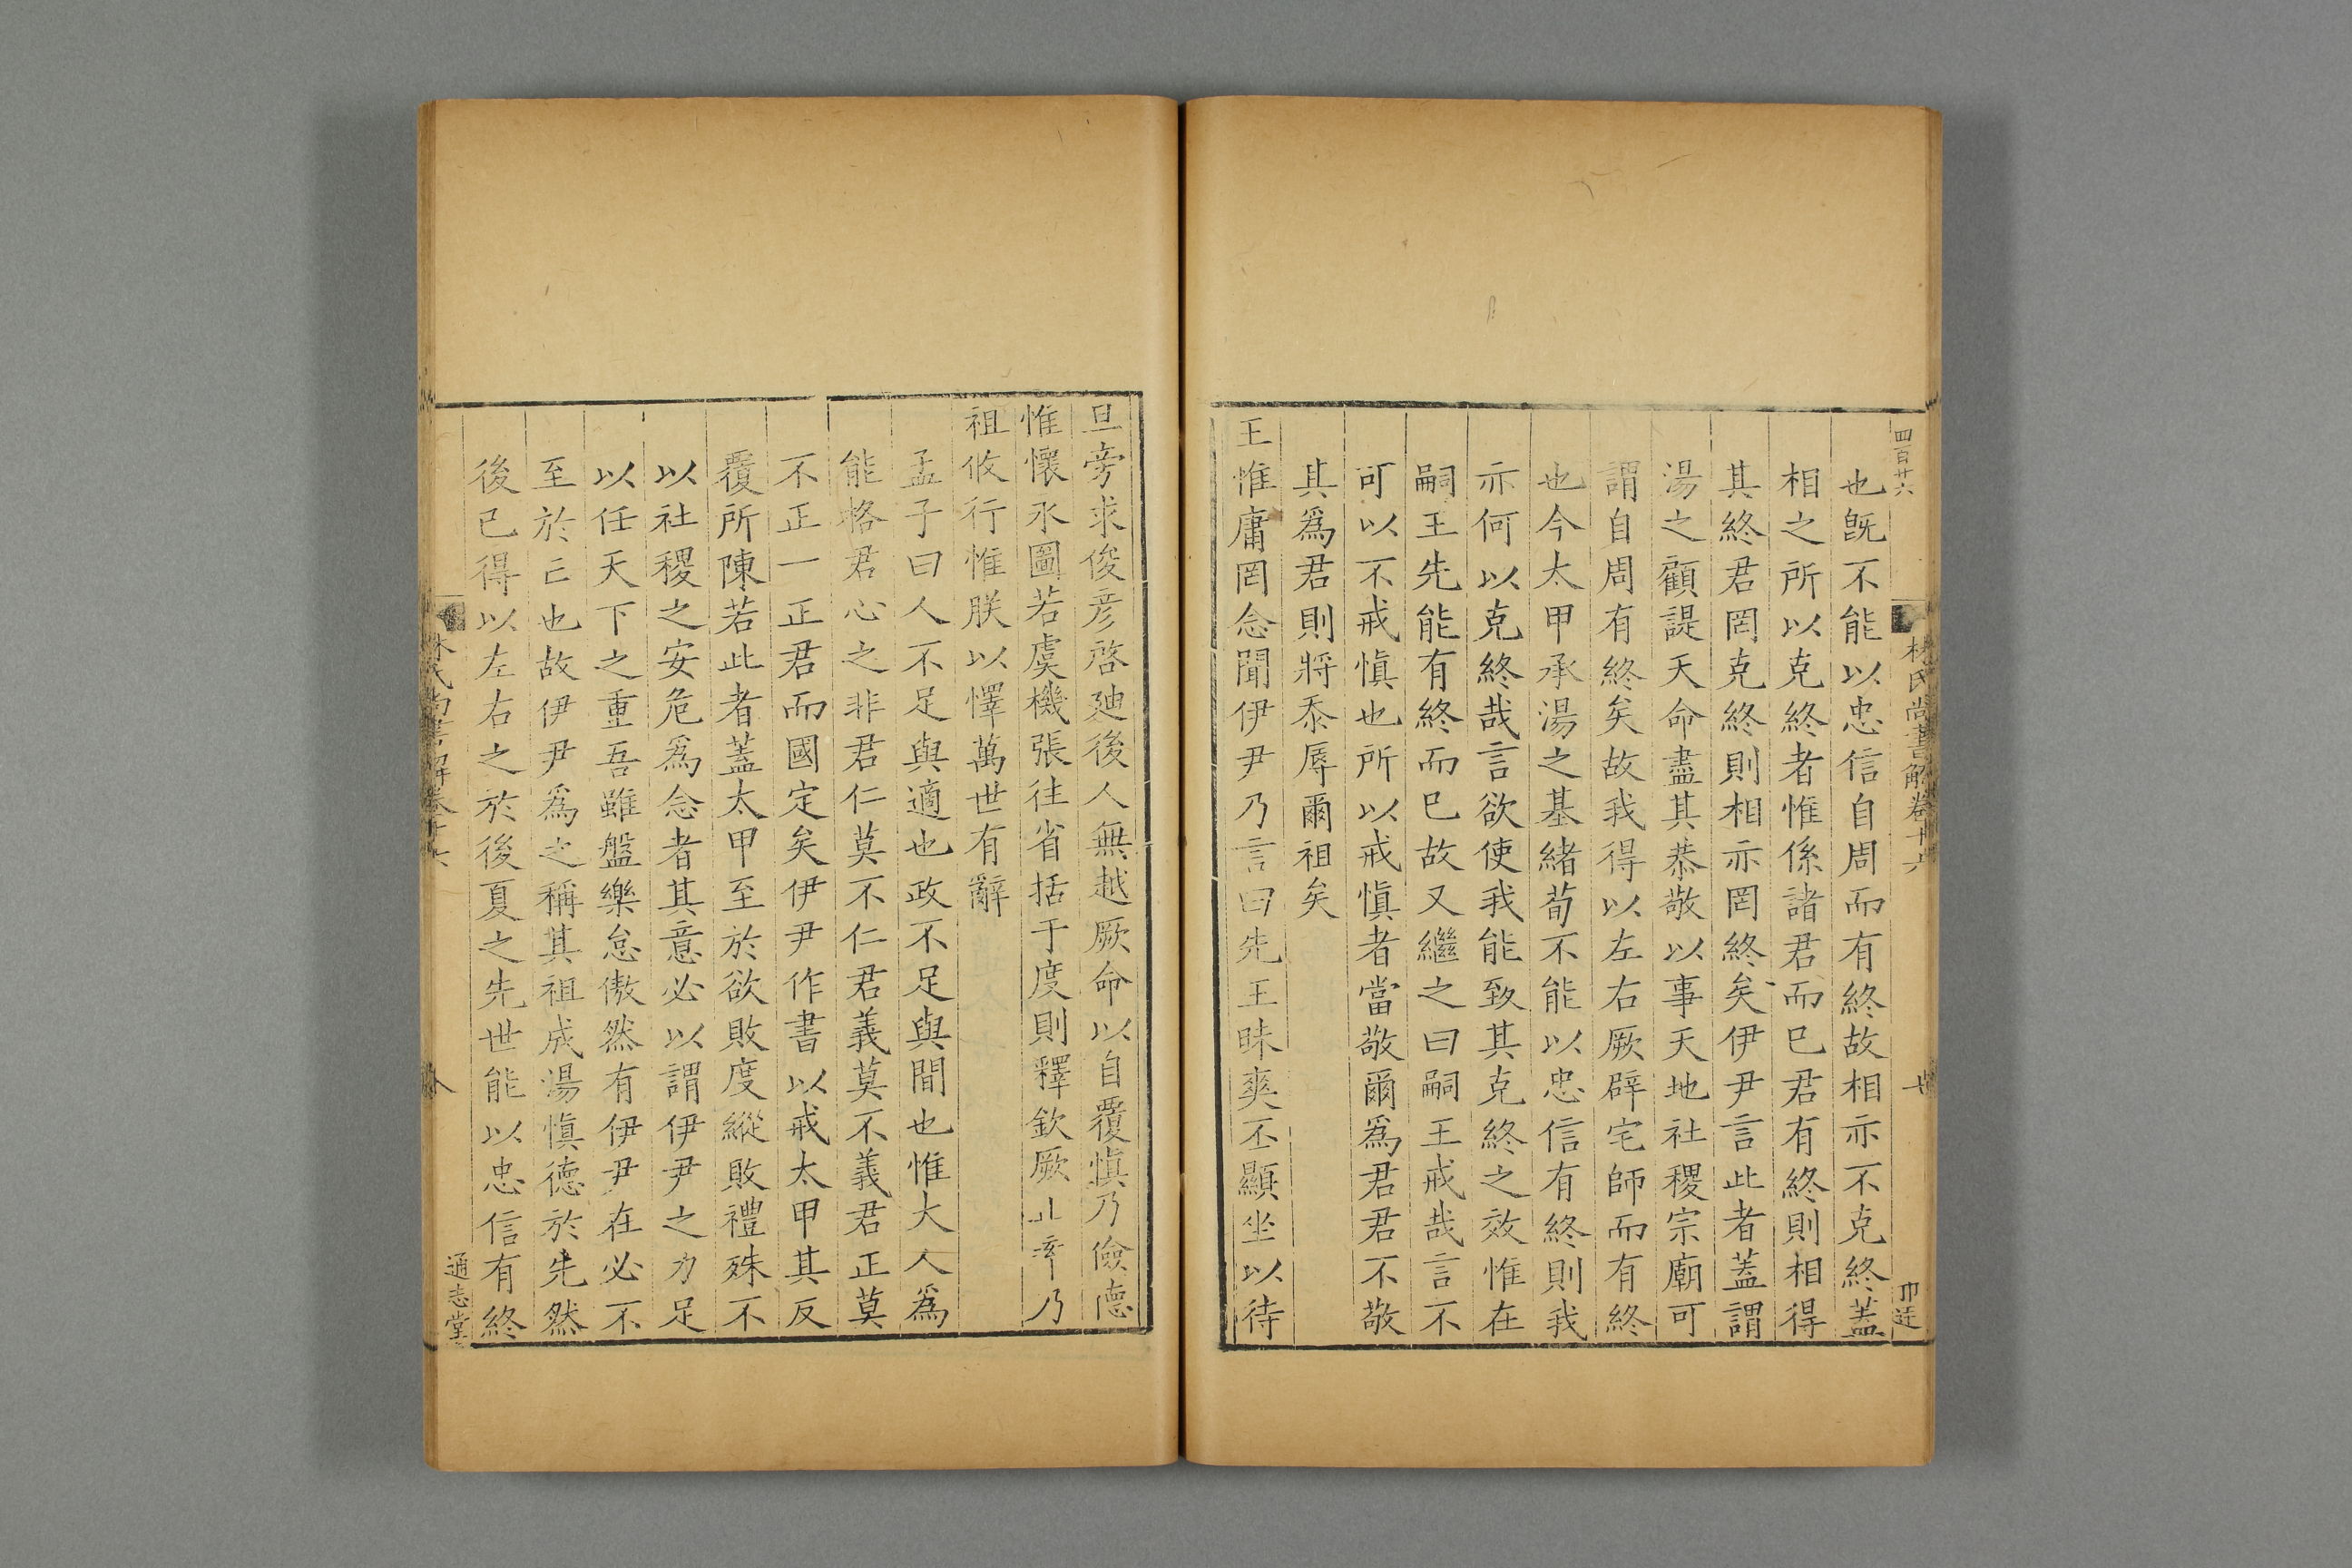 四百廿六
林氏尚書解卷十六
也旣不能以忠信自周而有終故相亦不克終蓋
相之所以克終者惟係諸君而已君有終則相得
其終君罔克終則相亦罔終矣伊尹言此者蓋謂
湯之顧諟天命盡其恭敬以事天地社稷宗廟可
謂自周有終矣故我得以左右厥辟宅師而有終
也今太甲承湯之基緒荀不能以忠信有終則我
亦何以克終哉言欲使我能致其克終之效惟在
嗣王先能有終而已故又繼之曰嗣王戒哉言不
可以不戒愼也所以戒愼者當敬爾爲君君不敬
其爲君則將忝辱爾祖矣
王惟庸罔念聞伊尹乃言曰先王昧爽丕顯坐以待
旦旁求俊彦啓廸後人無越厥命以自覆愼乃儉德
惟懷永圖若虞機張往省括于度則釋欽厥止率乃
祖攸行惟朕以懌萬世有辭
孟子曰人不足與適也政不足與間也惟大人爲
能格君心之非君仁莫不仁君義莫不義君正莫
不正一正君而國定矣伊尹作書以戒太甲其反
覆所陳若此者蓋太甲至於欲敗度縱敗禮殊不
以社稷之安危爲念者其意必以謂伊尹之力足
以任天下之重吾雖盤樂怠傲然有伊尹在必不
至於亡也故伊尹爲之稱其祖成湯愼德於先然
後已得以左右之於後夏之先世能以忠信有終
林氏尚書解卷十六
通志堂